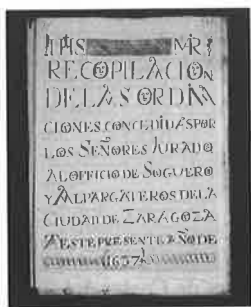 IHS MR
RECOPILACION
DE LAS ORDINA
CIONES CONCEDIDAS POR
LOS SEÑORES IURADO
AL OFFICIO DE SOGUERO
Y ALPARGATEROS DE LA
CIUDAD DE ZARAGOZA
AESTE PRESENTE AÑO DE
1657